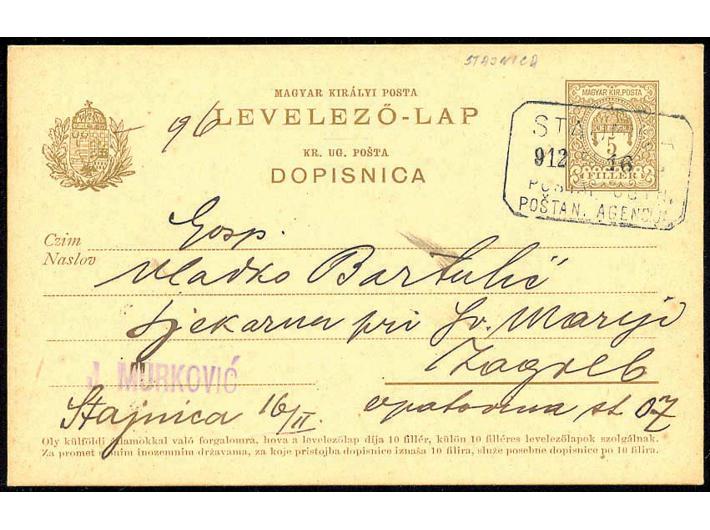 STAJNICA
MAGYAR KIRÁLYI POSTA
LEVELEZŐ-LAP
KR. UG. POŠTA
DOPISNICA
96
MAGYAR KIR. POSTA
5
FILLÉR
912 16
POŠTAN. AGENCIJA
Gosp.
Czim
Naslov
Vladko Bartulić
Ljekarna pri Sv. Mariji
Zagreb
J. MURKOVIĆ
Stajnica 16/II
Oly külföldi államokkal való forgalomra, hova a levelezőlap díja 10 fillér, külön 10 filléres levelezőlapok szolgálnak.
Za promet onim inozemnim državama, za koje pristojba dopisnice iznaša 10 filira, služe posebne dopisnice po 10 filira.